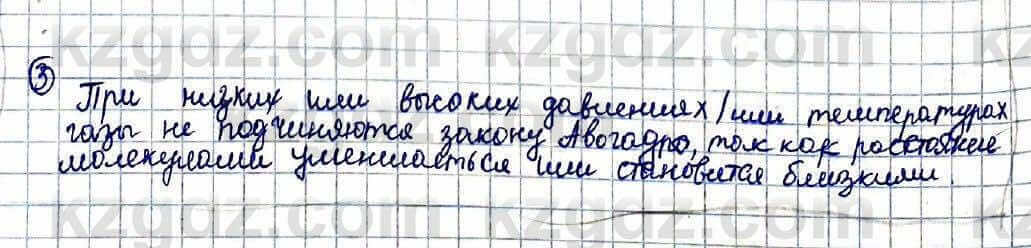 kzgdz.com kzgdz.com kz
③ При низких или высоких давлениях/или температурах
газы не подчиняются закону Авогадро, так как расстояние
молекулами уменшаеться или становится близкими.
kzgdz.com kzgdz.com kz